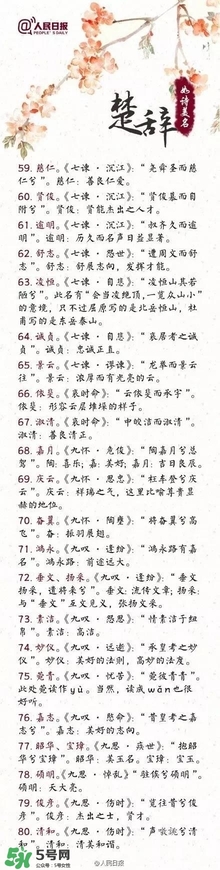 @人民日报
PEOPLE'S DAILY
如诗美名
楚辞
59. 慈仁。《七谏·沉江》：“尧舜圣而慈
仁兮”。慈仁：善良仁爱。
60. 贤俊。《七谏·沉江》：“贤俊慕而自
附兮”。贤俊：贤能杰出之人才。
61. 逾明。《七谏·沉江》：“叔齐久而逾
明”。逾明：历久而名声日益显著。
62. 舒志。《七谏·怨世》：“遭周文而舒
志”。舒志：舒展志向，发挥才能。
63. 凌恒。《七谏·自悲》：“凌恒山其若
陋兮”。此名有“会当凌绝顶，一览众山小”
的意境，只不过屈原写的是北岳恒山，杜
甫写的是东岳泰山。
64. 诚贞。《七谏·自悲》：“哀居者之诚
贞”。诚贞：忠诚正直。
65. 景云。《七谏·谬谏》：“龙举而景云
往”。景云：浓厚而有光亮的云。
66. 依斐。《哀时命》：“云依斐而承宇”。
依斐：形容云层堆垛的样子。
67. 淑清。《哀时命》：“中皎洁而淑清”。
淑清：善良清正。
68. 嘉月。《九怀·危俊》：“陶嘉月兮总
驾”。陶：喜乐；嘉：美好；嘉月：吉日良辰。
69. 庆云。《九怀·思忠》：“枉车登兮庆
云”。庆云：祥瑞之气，这里比喻尊贵显
赫的地位。
70. 奋翼。《九怀·陶壅》：“将奋翼兮高
飞”。奋：振羽展翅。
71. 鸿永。《九叹·逢纷》：“鸿永路有嘉
名”。鸿永路：前途远大。
72. 垂文、扬采。《九叹·逢纷》：“垂文
扬采，遗将来兮”。垂文：流传文章；扬采：
与“垂文”互文见义，张扬文采。
73. 素洁。《九叹·怨思》：“情素洁于纽
帛”。素洁：高洁。
74. 妙仪。《九叹·远逝》：“承皇考之妙
仪”。妙仪：美好的法则，高妙的法度。
75. 菀青。《九叹·忧苦》：“菀彼青青”。
此处菀读作yù。当然，读成wǎn也很
好听。
76. 嘉志。《九叹·愍命》：“昔皇考之嘉
志兮”。嘉志：美好的志向。
77. 昭华、宝璋。《九思·疾世》：“抱昭
华兮宝璋”。昭华：美玉名。宝璋：玉。
78. 硕明。《九思·悼乱》“跓俟兮硕明”。
硕明：天大亮。
79. 俊彦。《九思·伤时》：“览往昔兮俊
彦”。俊彦：杰出之士，贤才。
80. 清和。《九思·伤时》：“声噭誂兮清
和”。清和：清美和谐。
5号网
公众号：5号女性
@人民日报